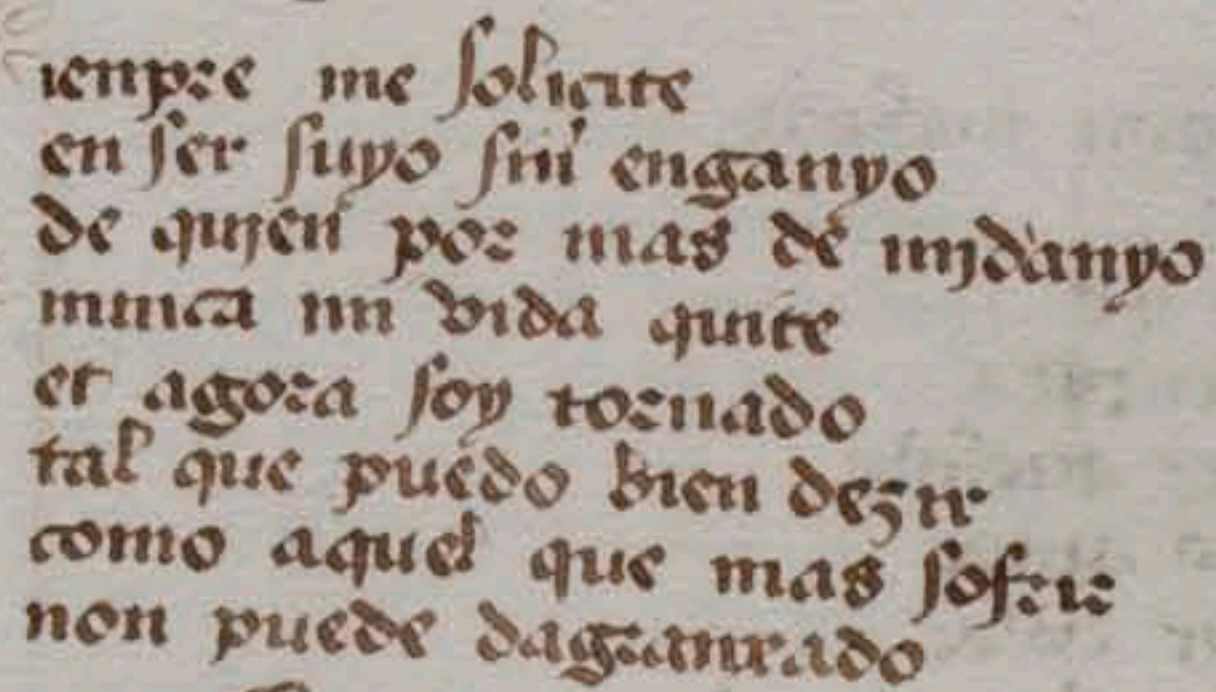 ienpre me solicite
en ser suyo sin enganyo
de qujen por mas de mj danyo
nunca mi vida quite
et agora soy tornado
tal que puedo bien dezir
como aquel que mas sofrir
non puede